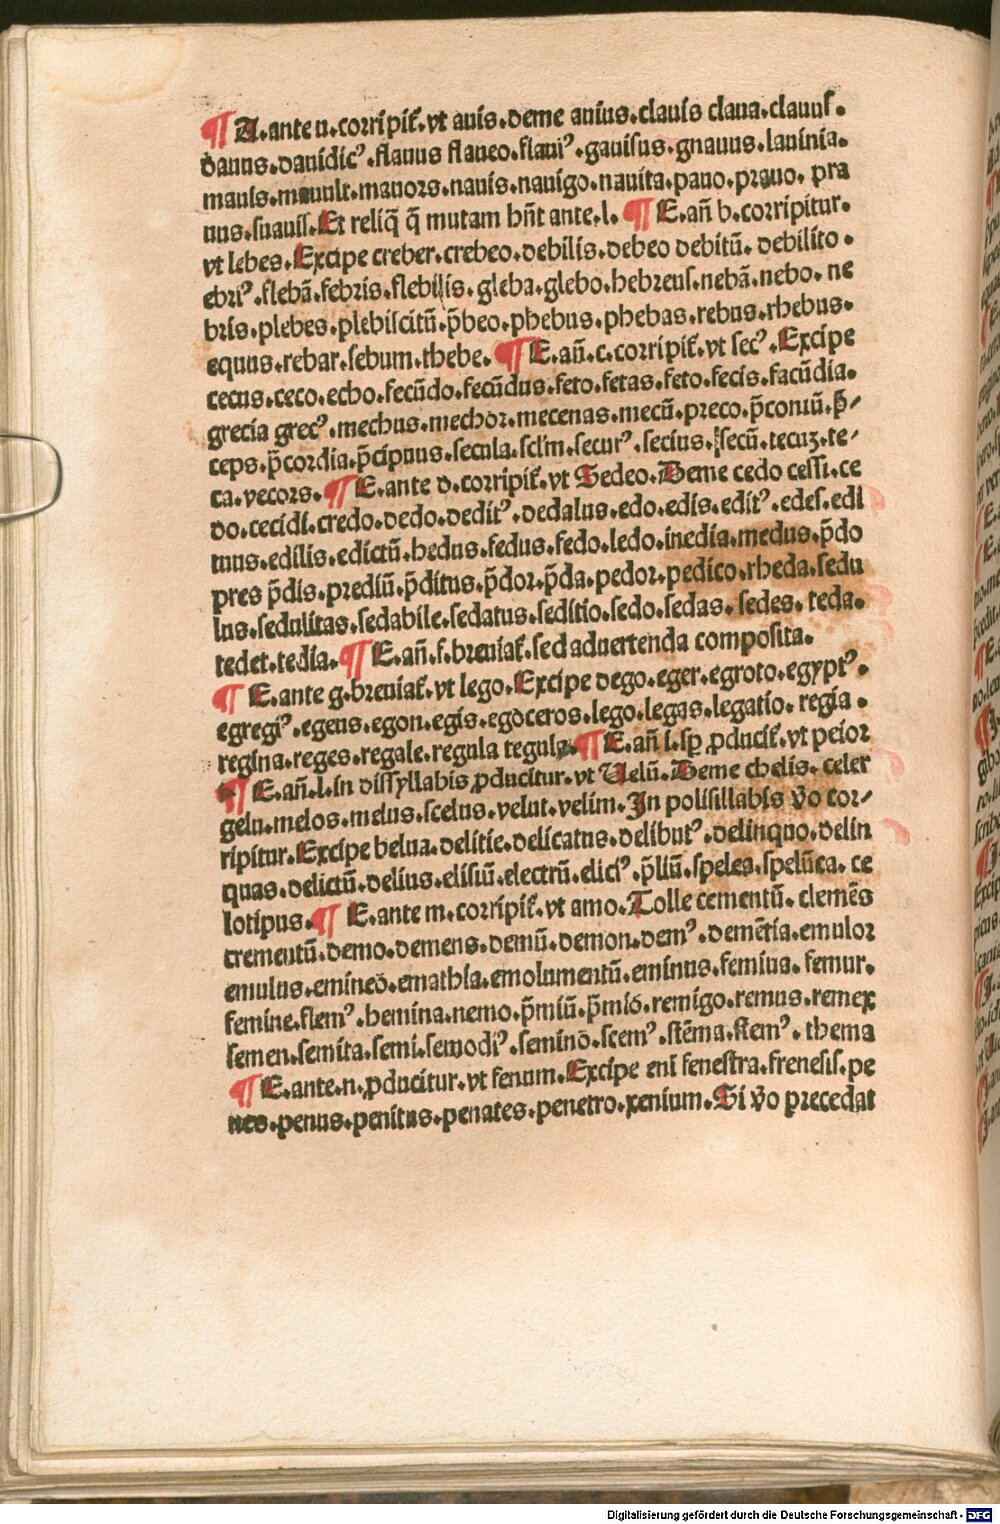 ¶ A.ante u.corripit̃.vt auis.deme auius.clauis claua.clauus.
dauus.dauidicꝰ.flauus flaueo.flauiꝰ.gauisus.gnauus.lauinia.
mauis.mauult.mauors.nauis.nauigo.nauita.pauo.prauo. pra
uus.suauis.Et reliq̃ q̃ mutam hñt ante.l. ¶ E.añ b.corripitur.
vt lebes.Excipe creber.crebeo.debilis.debeo debitũ. debilito.
ebriꝰ.flebã.febris.flebilis.gleba.glebo.hebreus.nebã.nebo. ne
bris.plebes.plebiscitũ.p̃beo.phebus.phebas.rebus.rhebus.
equus.rebar.sebum.thebe. ¶ E.añ.c.corripit̃.vt secꝰ.Excipe
cecus.ceco.echo.fecũdo.fecũdus.feto.fetas.feto.fecis.facũdia.
grecia grecꝰ.mechus.mechor.mecenas.mecũ.preco.p̃coniũ.p̃/
ceps.p̃cordia.p̃cipuus.secula.scl'm.securꝰ.secius.secũ.tecuꝫ.te/
ca.vecors. ¶ E.ante d.corripit̃.vt Sedeo.Deme cedo cessi.ce
do.cecidi.credo.dedo.deditꝰ.dedalus.edo.edis.editꝰ.edes.edi
tuus.edilis.edictũ.hedus.fedus.fedo.ledo.inedia.medus.p̃do
pres p̃dis.prediũ.p̃ditus.p̃dor.p̃da.pedor.pedico.rheda.sedu
lus.sedulitas.sedabile.sedatus.seditio.sedo.sedas. sedes. teda.
tedet.tedia. ¶ E.añ.f.breuiat̃.sed aduertenda composita.
¶ E.ante g.breuiat̃.vt lego.Excipe dego.eger.egroto.egyptꝰ.
egregiꝰ.egens.egon.egis.egoceros.lego.legas.legatio. regia.
regina.reges.regale.regula tegula. ¶ E.añ i.sp̱ ꝓducit̃.vt peior
¶ E.añ.l.in dissyllabis ꝓducitur.vt Uelũ.Deme chelis. celer
gelu.melos.melus.scelus.velut.velim.In polisillabis v̾o cor/
ripitur.Excipe belua.delitie.delicatus.delibutꝰ.delinquo.delin
quas.delictũ.delius.elisiũ.electrũ.eliciꝰ.p̃liũ.spelea.spelũca. ce
lotipus. ¶ E.ante m.corripit̃.vt amo.Tolle cementũ. clemẽs
crementũ.demo.demens.demũ.demon.demꝰ.demẽtia.emulor
emulus.emineõ.emathia.emolumentũ.eminus.femina. femur.
femine.flemꝰ.hemina.nemo.p̃miũ.p̃miõ.remigo.remus.remex
semen.semita.semi.semodiꝰ.seminõ.scemꝰ.stẽma.stemꝰ. thema
¶ E.ante.n.ꝓducitur.vt fenum.Excipe eni fenestra.frenesis.pe
nes.penus.penitus.penates.penetro.xenium.Si v̾o precedat
Digitalisierung gefördert durch die Deutsche Forschungsgemeinschaft - DFG